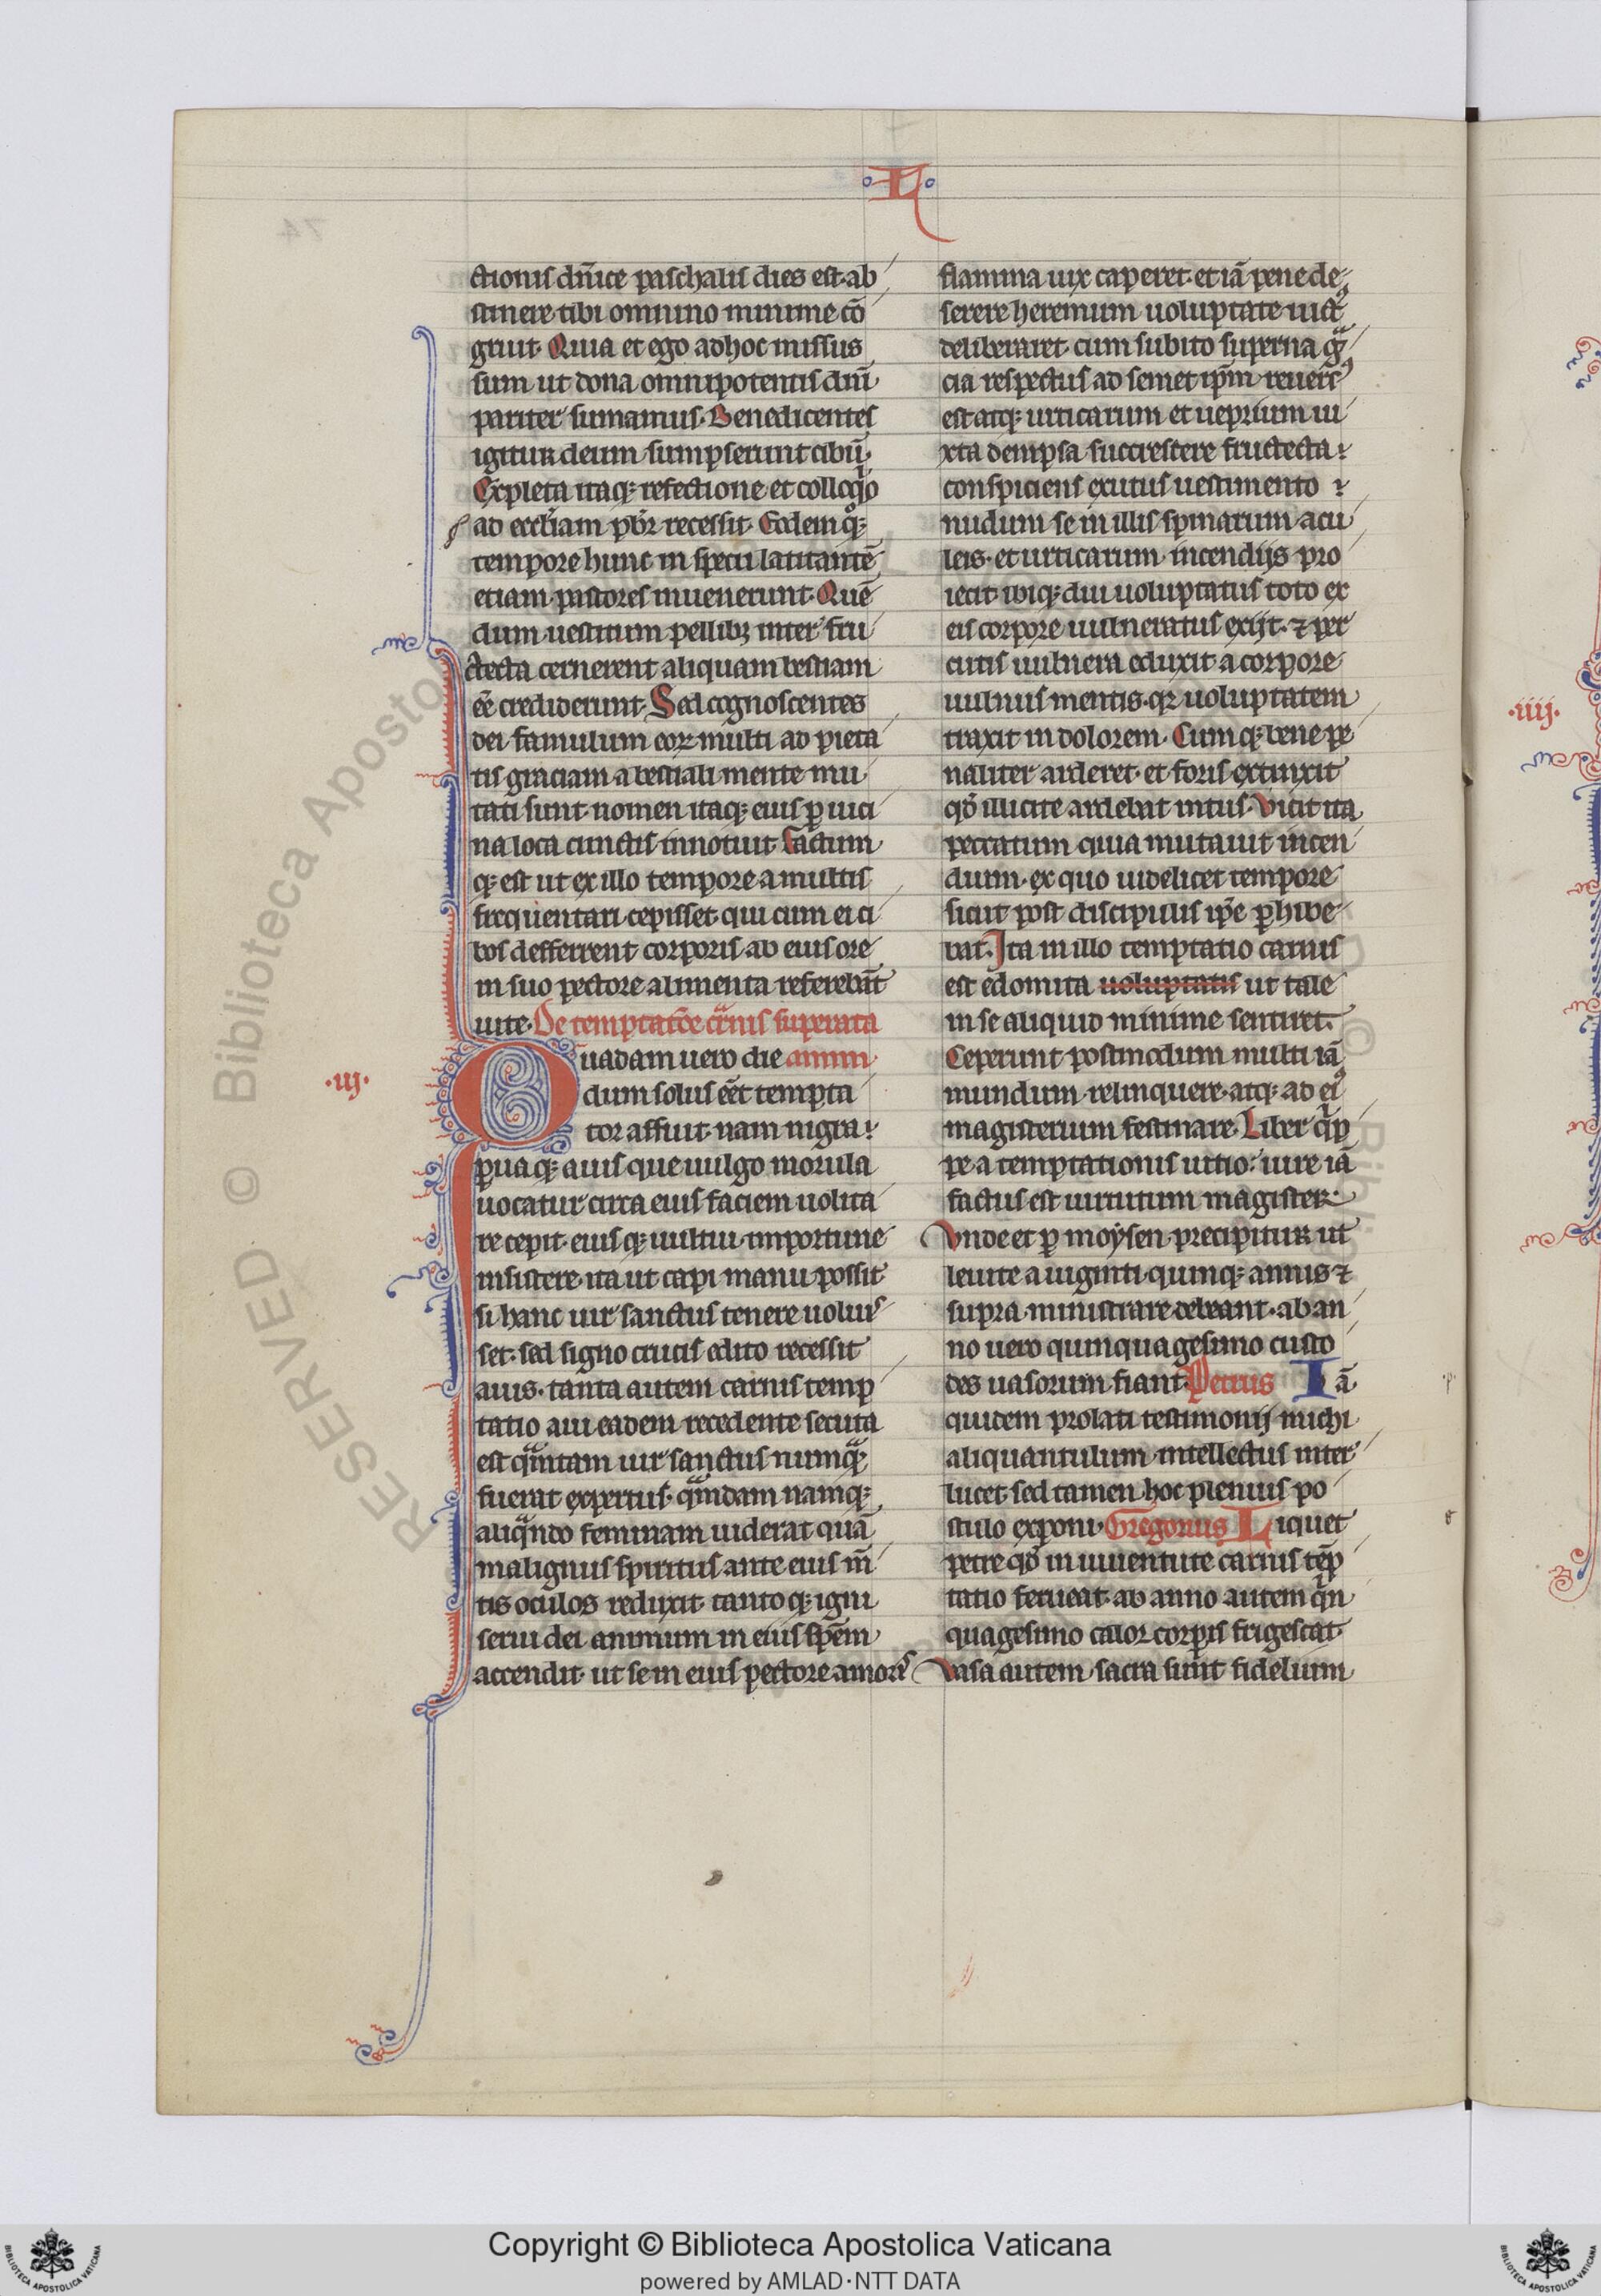 L
ctionis dn̄ice paschalis dies est·ab
stinere tibi omnino minime cō
gruit· Quia et ego adhoc missus
sum ut dona omnipotentis dn̄i
pariter sumamus· Benedicentes
igitur deum sumpserunt cibū·
Expleta itaqꝫ refectione et colloq̊o
ad eccl̄iam pb̄r recessit· Eodem q̊ꝫ
tempore hunc in specu latitantē
etiam pastores inuenerunt· Quē
dum uestitum pellibꝫ inter fru
ctecta cernerent aliquam bestiam
eē̄ crediderunt· Sed cognoscentes
dei famulum eoꝝ multi ad pieta
tis graciam a bestiali mente mu
tati sunt· nomen itaqꝫ eius ꝑ uici
na loca cunctis innotuit factum
qꝫ est ut ex illo tempore a multis
frequentari cepisset qui cum ei ci
bos defferrent corporis· ab eius ore
in suo pectore alimenta referebāt
uite· De temptatōe carnis superata
·iij·
Quadam uero die
dum solus eēt tempta
tor affuit· nam nigra
ꝑuaqꝫ auis que uulgo morula
uocatur circa eius faciem uolita
re cepit· eiusqꝫ uultui importune
insistere· ita ut capi manu possit
si hanc uir sanctus tenere uoluis
set· sed signo crucis edito recessit
auis· tanta autem carnis temp
tatio aui eadem recedente secuta
est quantam uir sanctus numqᵃꝫ
fuerat expertus· quandam namqꝫ
aliquando feminam uiderat quā
malignus spiritus ante eius m̄
tis oculos reduxit· tantoqꝫ igni
serui dei animum in eius spēm
accendit· ut se in eius pectore amoris
flamma uix caperet· et iā pene de
serere heremum uoluptate uictꝰ
deliberaret· cum subito superna gᵃ
cia respectus ad semet ip̄m reuersꝰ
est atqꝫ urticarum et ueprium iu
xta dempsa succrescere fructecta
conspiciens exutus uestimento
nudum se in illis spinarum acu
leis· et urticarum incendijs pro
iecit· ibiqꝫ diu uoluptatus toto ex
eis corpore uulneratus exijt· ⁊ per
cutis uulnera eduxit a corpore
uulnus mentis· qꝫ uoluptatem
traxit in dolorem· Cumqꝫ bene pe
naliter arderet· et foris extinxit
qd̊ illicite ardebat intus· Vicit ita
peccatum quia mutauit incen
dium· ex quo uidelicet tempore
sicut post discipulis ip̄e ꝑhibe
bat· Ita in illo temptatio carnis
est edomita uoluptatis ut tale
in se aliquid minime sentiret·
Ceperunt postmodum multi iā
mundum relinquere· atqꝫ ad eiꝰ
magisterium festinare· Liber qⁱp
pe a temptationis uitio· iure iā
factus est uirtutum magister·
Vnde et ꝑ moẏsen precipitur ut
leuite a uiginti quinqꝫ annis ⁊
supra ministrare debeant· ab an
no uero quinquagesimo custo
des uasorum fiant· Petrus Iā
quidem prolati testimonij michi
aliquantulum intellectus inter
lucet· sed tamen hoc plenius po
stulo exponi· Gregorius Liquet
petre qd̊ in iuuentute carnis tēp
tatio ferueat· ab anno autem qⁱn
quagesimo calor corꝑis frigescat·
Vasa autem sacra sunt fidelium
·iiij·
RESERVED © Biblioteca Aposto
© Bibli
Copyright © Biblioteca Apostolica Vaticana
powered by AMLAD·NTT DATA
BIBLIOTECA APOSTOLICA VATICANA
BIBLIOTECA APOSTOLICA VATICANA